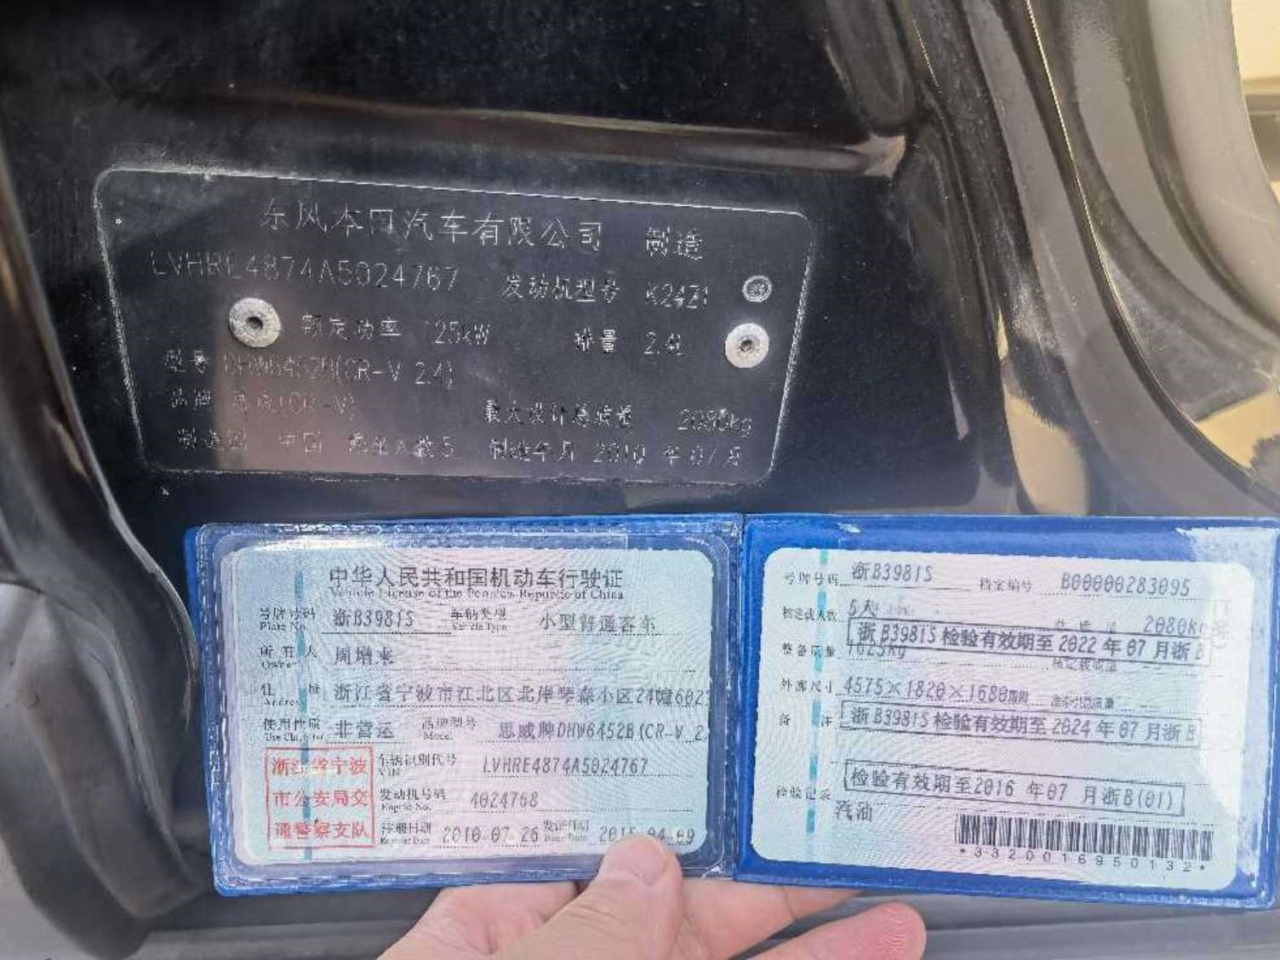 东风本田汽车有限公司 制造
LVHRE4874A5024767 发动机型号 K24Z1
额定功率 125kW 排量 2.4L
型号 DHW6452B(CR-V 2.4)
品牌 思威(CR-V) 最大设计总质量 2080kg
制造国 中国 乘坐人数 5 制造年月 2010 年 07 月
中华人民共和国机动车行驶证
Vehicle License of the People's Republic of China
号牌号码 浙B3981S 车辆类型 小型普通客车
Plate No. Vehicle Type
所有人 周增来
Owner
住址 浙江省宁波市江北区北岸琴森小区24幢602
Address
使用性质 非营运 品牌型号 思威牌DHW6452B(CR-V 2.
Use Character Model
浙江省宁波
市公安局交
通警察支队
车辆识别代号 LVHRE4874A5024767
VIN
发动机号码 4024768
Engine No.
注册日期 2010-07-26 发证日期 2015-04-09
Register Date Issue Date
号牌号码 浙B3981S 档案编号 B00000283095
核定载人数 5人 总质量 2080Kg
浙B3981S检验有效期至2022年07月浙B
整备质量 1625Kg 核定载质量
外廓尺寸 4575×1820×1680mm
备注
浙B3981S检验有效期至2024年07月浙B
检验有效期至2016 年07 月浙B(01)
检验记录
汽油
*3320016950132*